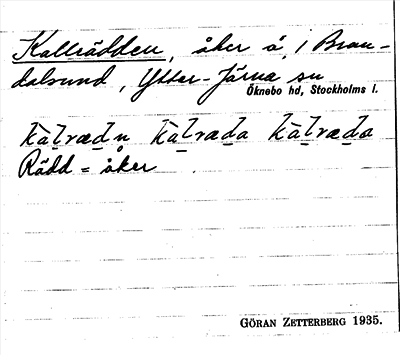 Kallrädden, åker å, i Bran-
dalsund, Ytter-Järna sn
Öknebo hd, Stockholms l.
Rädd = åker
GÖRAN ZETTERBERG 1935.